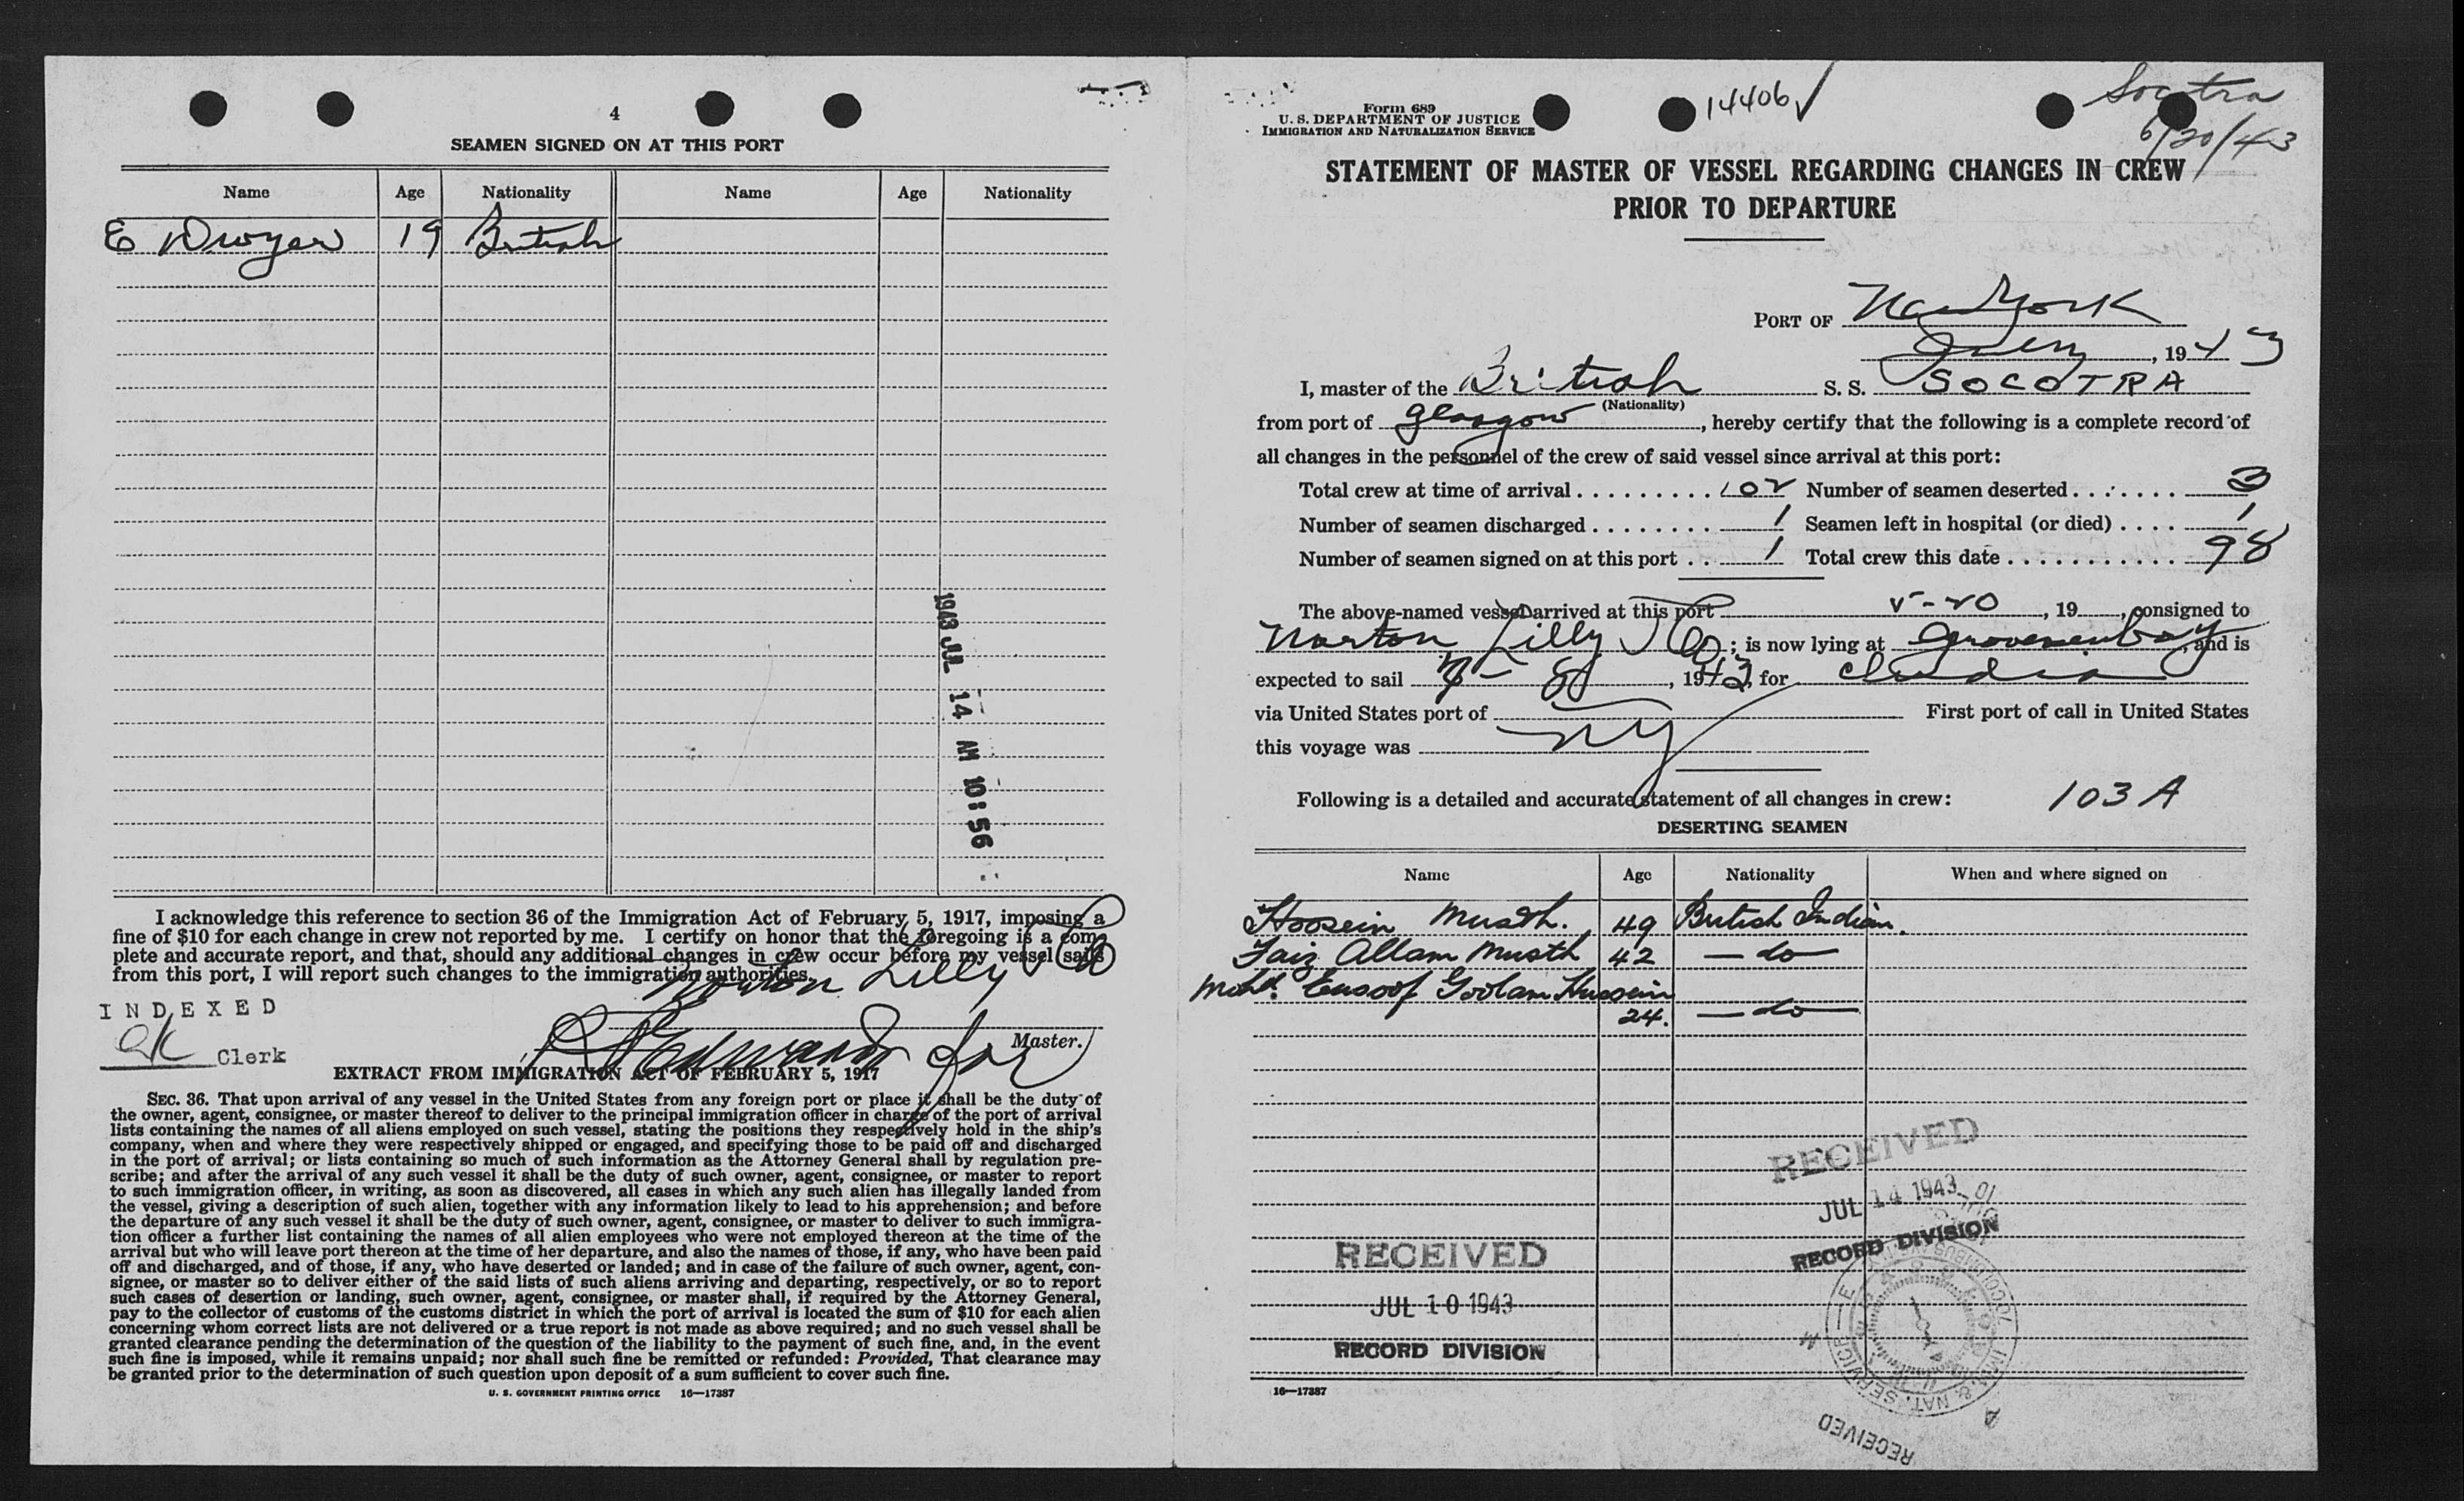 4
SEAMEN SIGNED ON AT THIS PORT
Name Age Nationality Name Age Nationality
E Dwyer 19 British
1943 JUL 14 AM 10:56
I acknowledge this reference to section 36 of the Immigration Act of February 5, 1917, imposing a
fine of $10 for each change in crew not reported by me. I certify on honor that the foregoing is a com-
plete and accurate report, and that, should any additional changes in crew occur before my vessel sails
from this port, I will report such changes to the immigration authorities.
Norton Lilly & Co
INDEXED
Master.
Clerk
EXTRACT FROM IMMIGRATION ACT OF FEBRUARY 5, 1917
SEC. 36. That upon arrival of any vessel in the United States from any foreign port or place it shall be the duty of
the owner, agent, consignee, or master thereof to deliver to the principal immigration officer in charge of the port of arrival
lists containing the names of all aliens employed on such vessel, stating the positions they respectively hold in the ship's
company, when and where they were respectively shipped or engaged, and specifying those to be paid off and discharged
in the port of arrival; or lists containing so much of such information as the Attorney General shall by regulation pre-
scribe; and after the arrival of any such vessel it shall be the duty of such owner, agent, consignee, or master to report
to such immigration officer, in writing, as soon as discovered, all cases in which any such alien has illegally landed from
the vessel, giving a description of such alien, together with any information likely to lead to his apprehension; and before
the departure of any such vessel it shall be the duty of such owner, agent, consignee, or master to deliver to such immigra-
tion officer a further list containing the names of all alien employees who were not employed thereon at the time of the
arrival but who will leave port thereon at the time of her departure, and also the names of those, if any, who have been paid
off and discharged, and of those, if any, who have deserted or landed; and in case of the failure of such owner, agent, con-
signee, or master so to deliver either of the said lists of such aliens arriving and departing, respectively, or so to report
such cases of desertion or landing, such owner, agent, consignee, or master shall, if required by the Attorney General,
pay to the collector of customs of the customs district in which the port of arrival is located the sum of $10 for each alien
concerning whom correct lists are not delivered or a true report is not made as above required; and no such vessel shall be
granted clearance pending the determination of the question of the liability to the payment of such fine, and, in the event
such fine is imposed, while it remains unpaid; nor shall such fine be remitted or refunded: Provided, That clearance may
be granted prior to the determination of such question upon deposit of a sum sufficient to cover such fine.
U. S. GOVERNMENT PRINTING OFFICE 16—17387
Form 689
U. S. DEPARTMENT OF JUSTICE
IMMIGRATION AND NATURALIZATION SERVICE
14406✓
Socotra
6/20/43
STATEMENT OF MASTER OF VESSEL REGARDING CHANGES IN CREW
PRIOR TO DEPARTURE
PORT OF New York
July, 1943
I, master of the British S. S. SOCOTRA
(Nationality)
from port of Glasgow, hereby certify that the following is a complete record of
all changes in the personnel of the crew of said vessel since arrival at this port:
Total crew at time of arrival . . . . . . . . . 102 Number of seamen deserted . . . . . . . 3
Number of seamen discharged . . . . . . . . 1 Seamen left in hospital (or died) . . . . 1
Number of seamen signed on at this port . . 1 Total crew this date . . . . . . . . . . . 98
The above-named vessel arrived at this port , 19 , consigned to
Norton Lilly & Co; is now lying at , and is
expected to sail 7-8, 1943, for
via United States port of First port of call in United States
this voyage was NY
Following is a detailed and accurate statement of all changes in crew: 103 A
DESERTING SEAMEN
Name Age Nationality When and where signed on
Hoosein Musth. 49 British Indian.
Faiz Allam Musth 42 — do —
Mohd. Eusoof Goolam Hussein
24. — do —
RECEIVED
JUL 14 1943
RECORD DIVISION
RECEIVED
JUL 10 1943
RECORD DIVISION
16—17387
RECEIVED